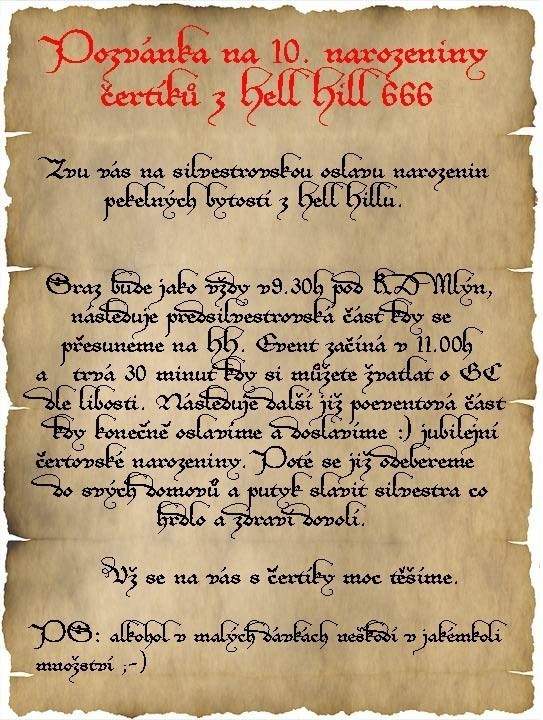 Pozvánka na 10. narozeniny
čertíků z Hell Hill 666
Zvu vás na silvestrovskou oslavu narozenin
pekelných bytostí z Hell Hillu.
Sraz bude jako vždy v9.30h pod KD Mlýn,
následuje předsilvestrovská část kdy se
přesuneme na HH. Event začíná v 11.00h
a trvá 30 minut kdy si můžete žvatlat o GC
dle libosti. Následuje další již poeventová část
kdy konečně oslavíme a doslavíme :) jubilejní
čertovské narozeniny. Poté se již odebereme
do svých domovů a putyk slavit silvestra co
hrdlo a zdraví dovolí.
Už se na vás s čertíky moc těšíme.
PS: alkohol v malých dávkách neškodí v jakémkoli
množství ;-)